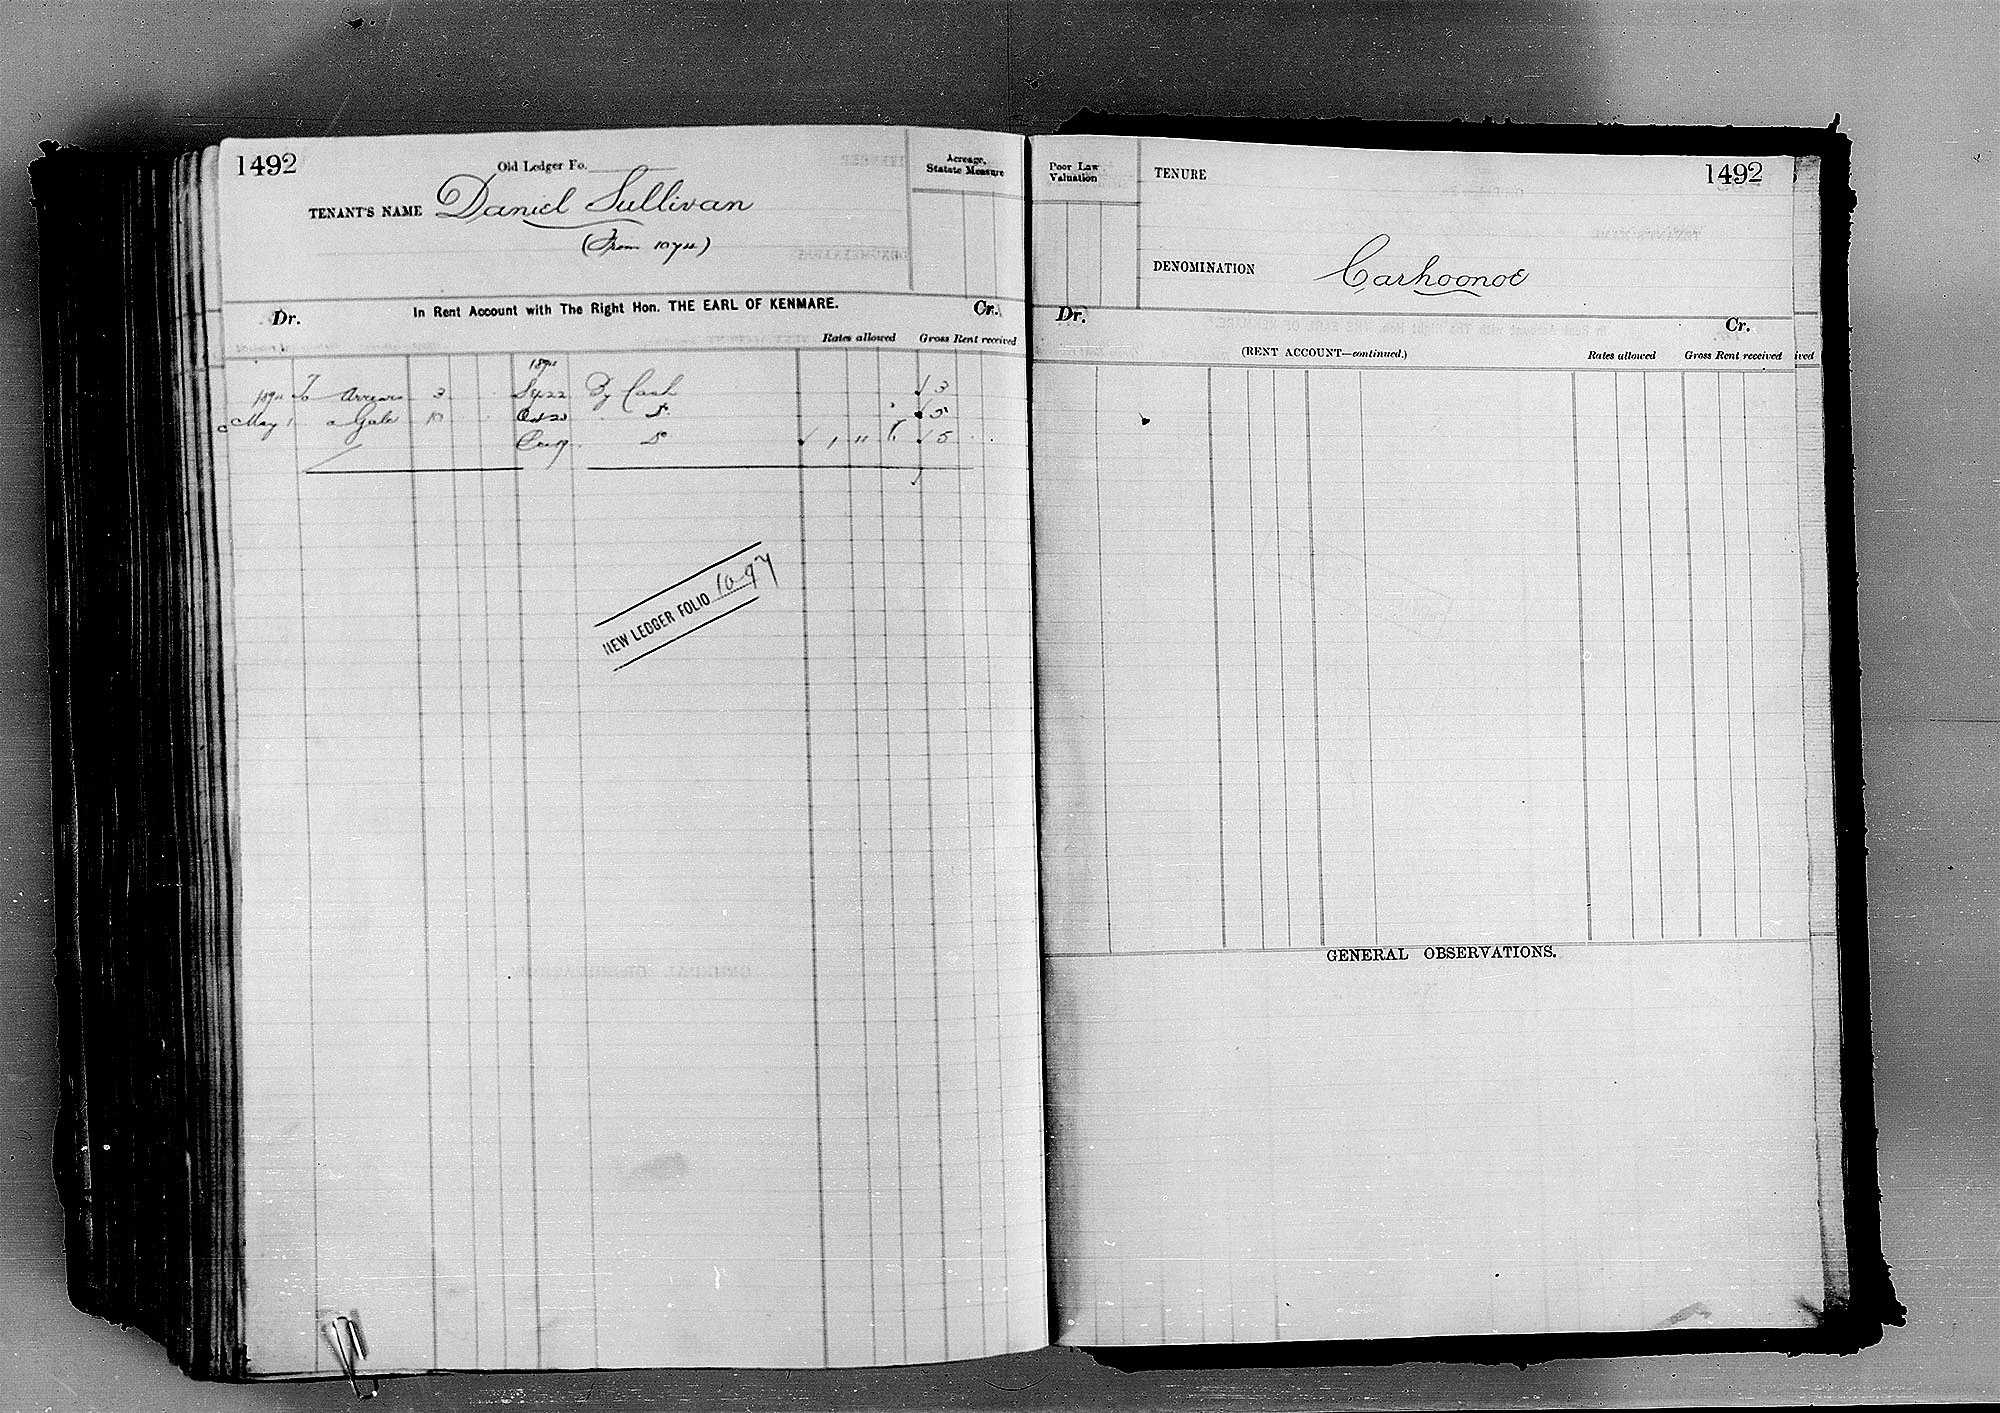 1492
Old Ledger Fo.
TENANT'S NAME Daniel Sullivan
(From 1074)
Acreage,
Statute Measure
Dr. In Rent Account with The Right Hon. THE EARL OF KENMARE. Cr.
Rates allowed Gross Rent received
1894
1894 To Arrears 3 Sep 22 By Cash 3
May 1 a Gale 10 Oct 20 Do 5
Do 1 11 5
NEW LEDGER FOLIO 1097
Poor Law
Valuation
TENURE
1492
DENOMINATION Carhoonoe
Dr. Cr.
(RENT ACCOUNT—continued.) Rates allowed Gross Rent received
GENERAL OBSERVATIONS.